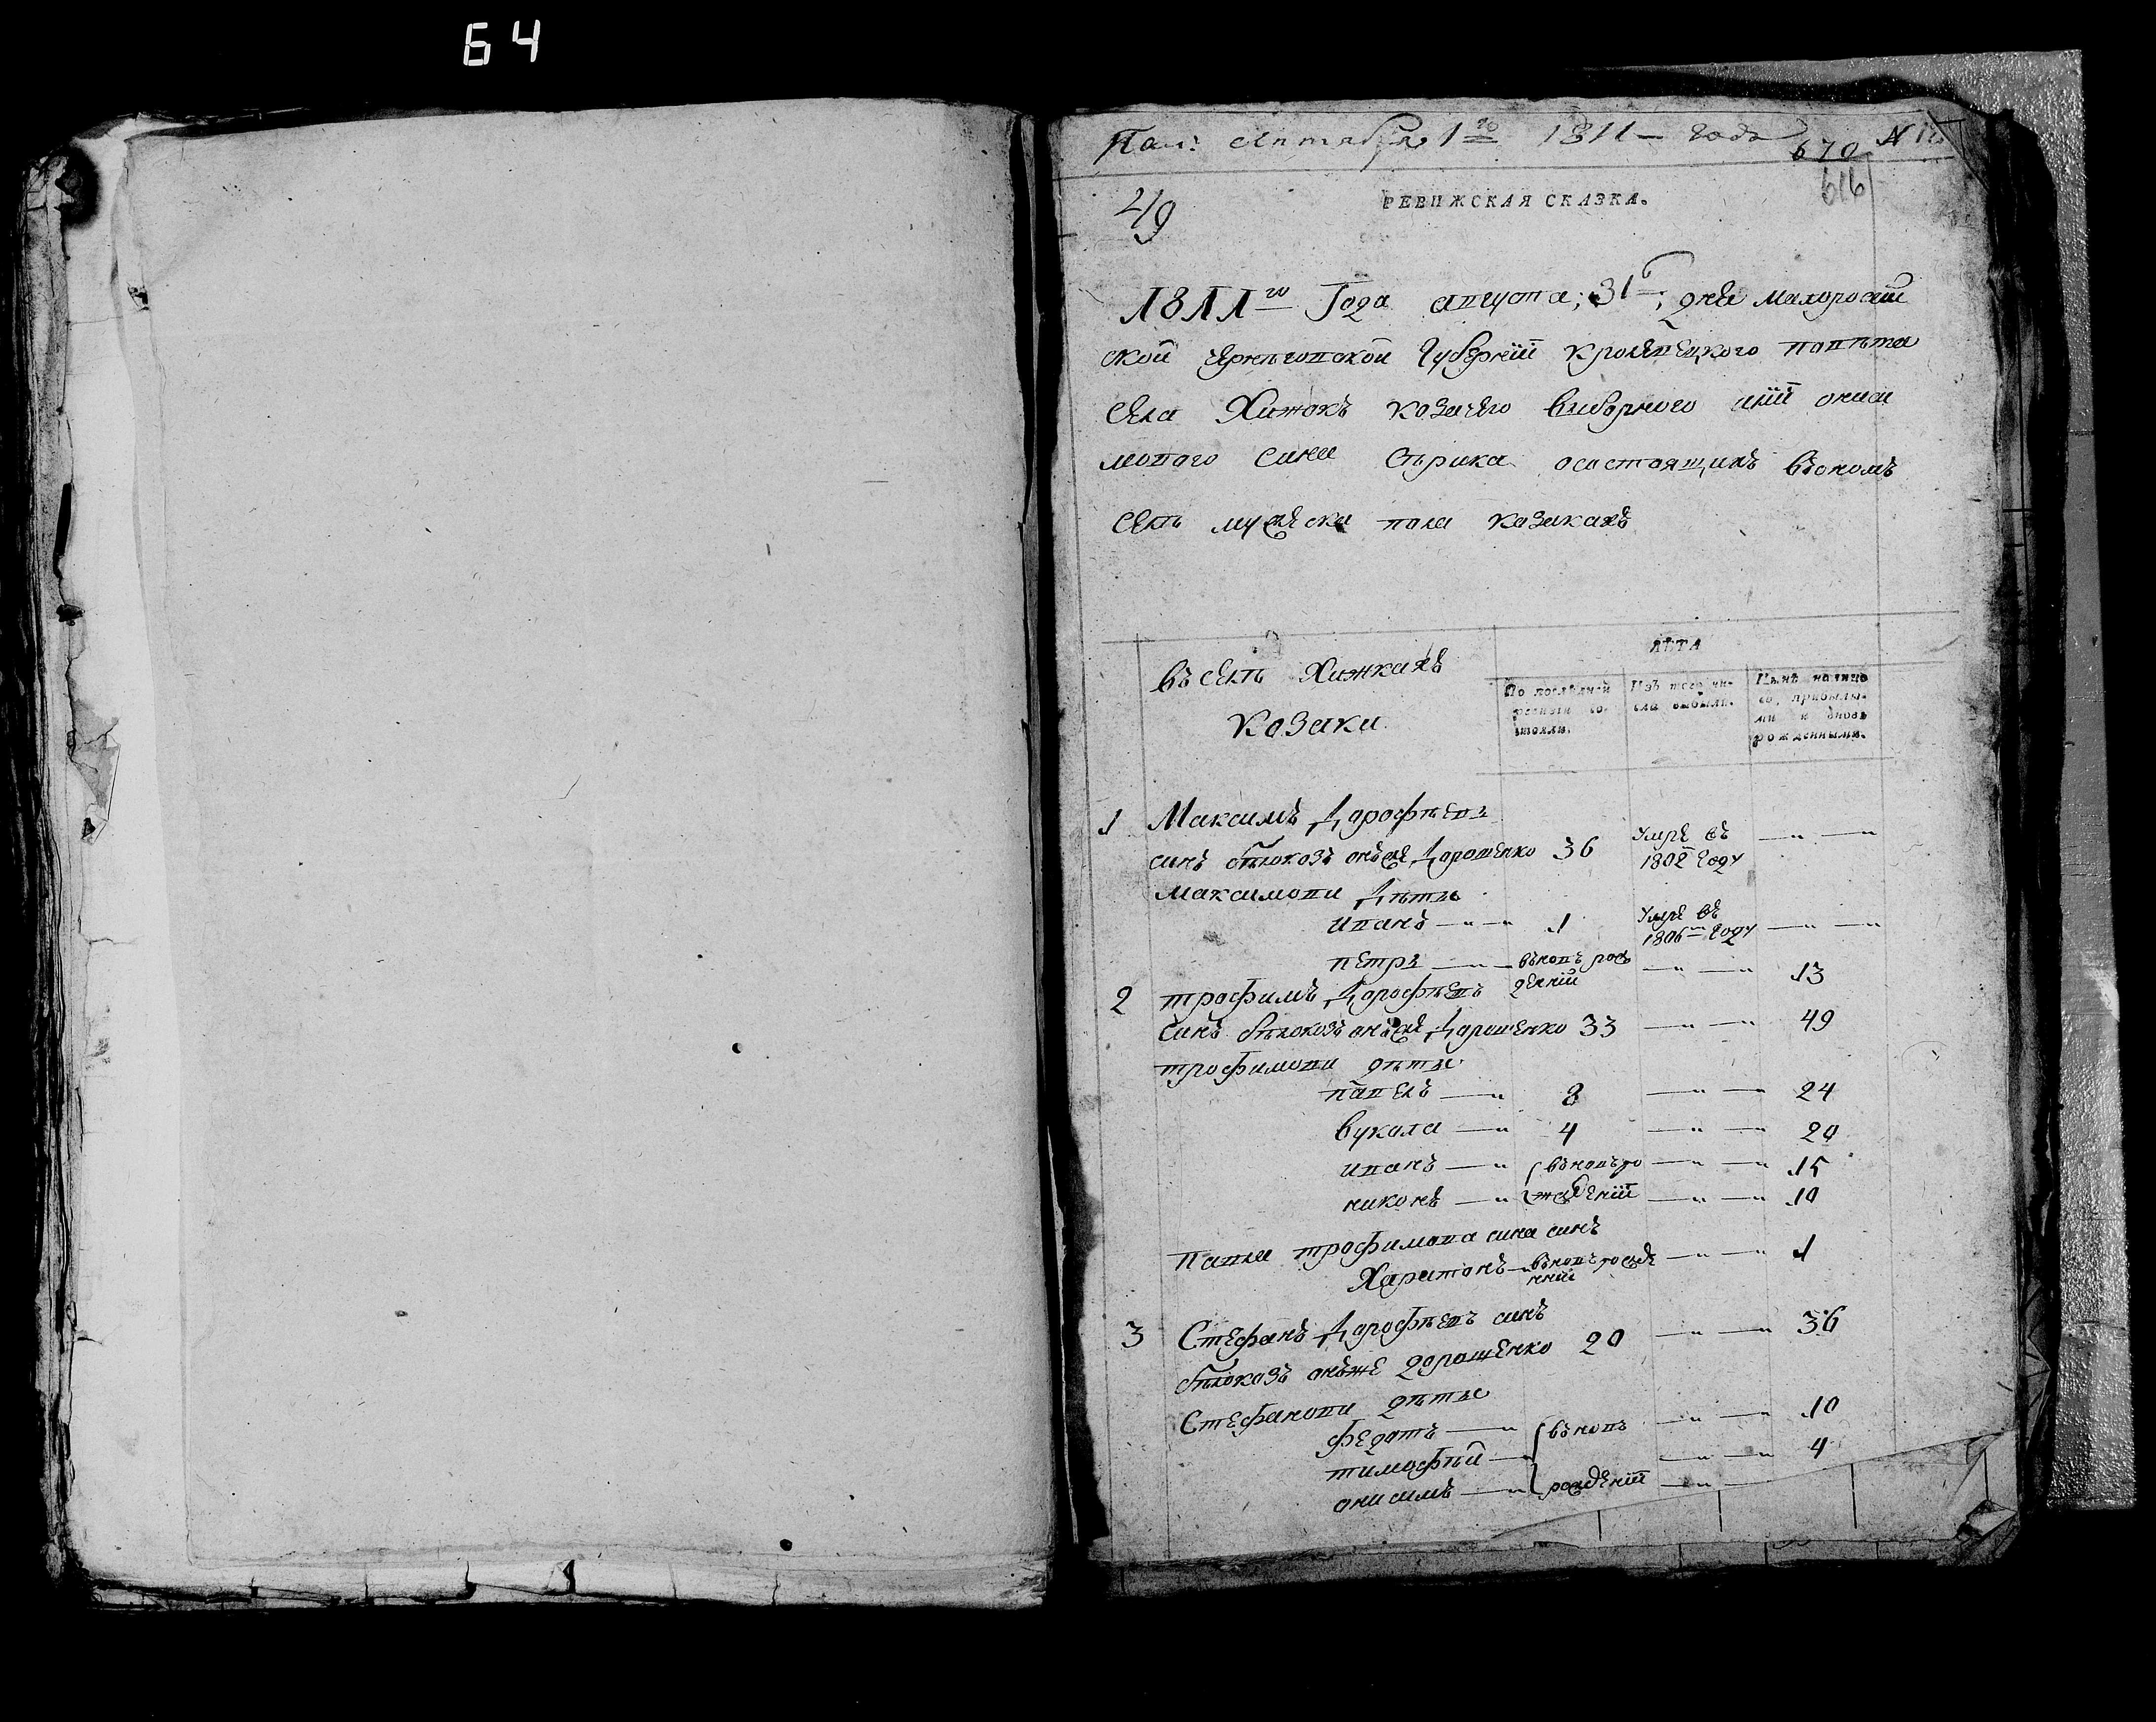 64
Пол: Сентября 1го 1811 года
670
616
49
РЕВИЖСКАЯ СКАЗКА.
1811го Года августа; 31; дня малоросій
ской Черниговской Губерніи Кролевецкого повѣта
села Хижокъ козачего виборного
сина осостоящихъ въономъ
селѣ мужеска пола козакахъ
въ селѣ Хижкахъ
козаки
ЛѢТА
По послѣдней ревизіи состояли.
Изъ того числа выбыли.
Нынѣ на лицо со прибылыми и вновь рожденными.
1 Максимъ Дорофѣевъ
синъ бѣлокозъ онъже Дорошенко 36 Умре въ 1802 Году
Максимови дѣти
иванъ 1 Умре въ 1806 Году
петръ вновъ рождений 13
2 трофимъ Дорофѣевъ
синъ бѣлокозъ онъже Дорошенко 33 49
трофимови дѣти
павелъ 8 24
вукола 4 20
иванъ вновъ ро 15
никонъ жденій 10
павла трофимова сина синъ
Харитонъ вновъ рожде ній 1
3 Стефанъ Дорофѣевъ синъ
бѣлокозъ онъже Дорошенко 20 36
Стефанови дѣти
федотъ вновъ 10
тимофѣй 4
онисимъ рожденій